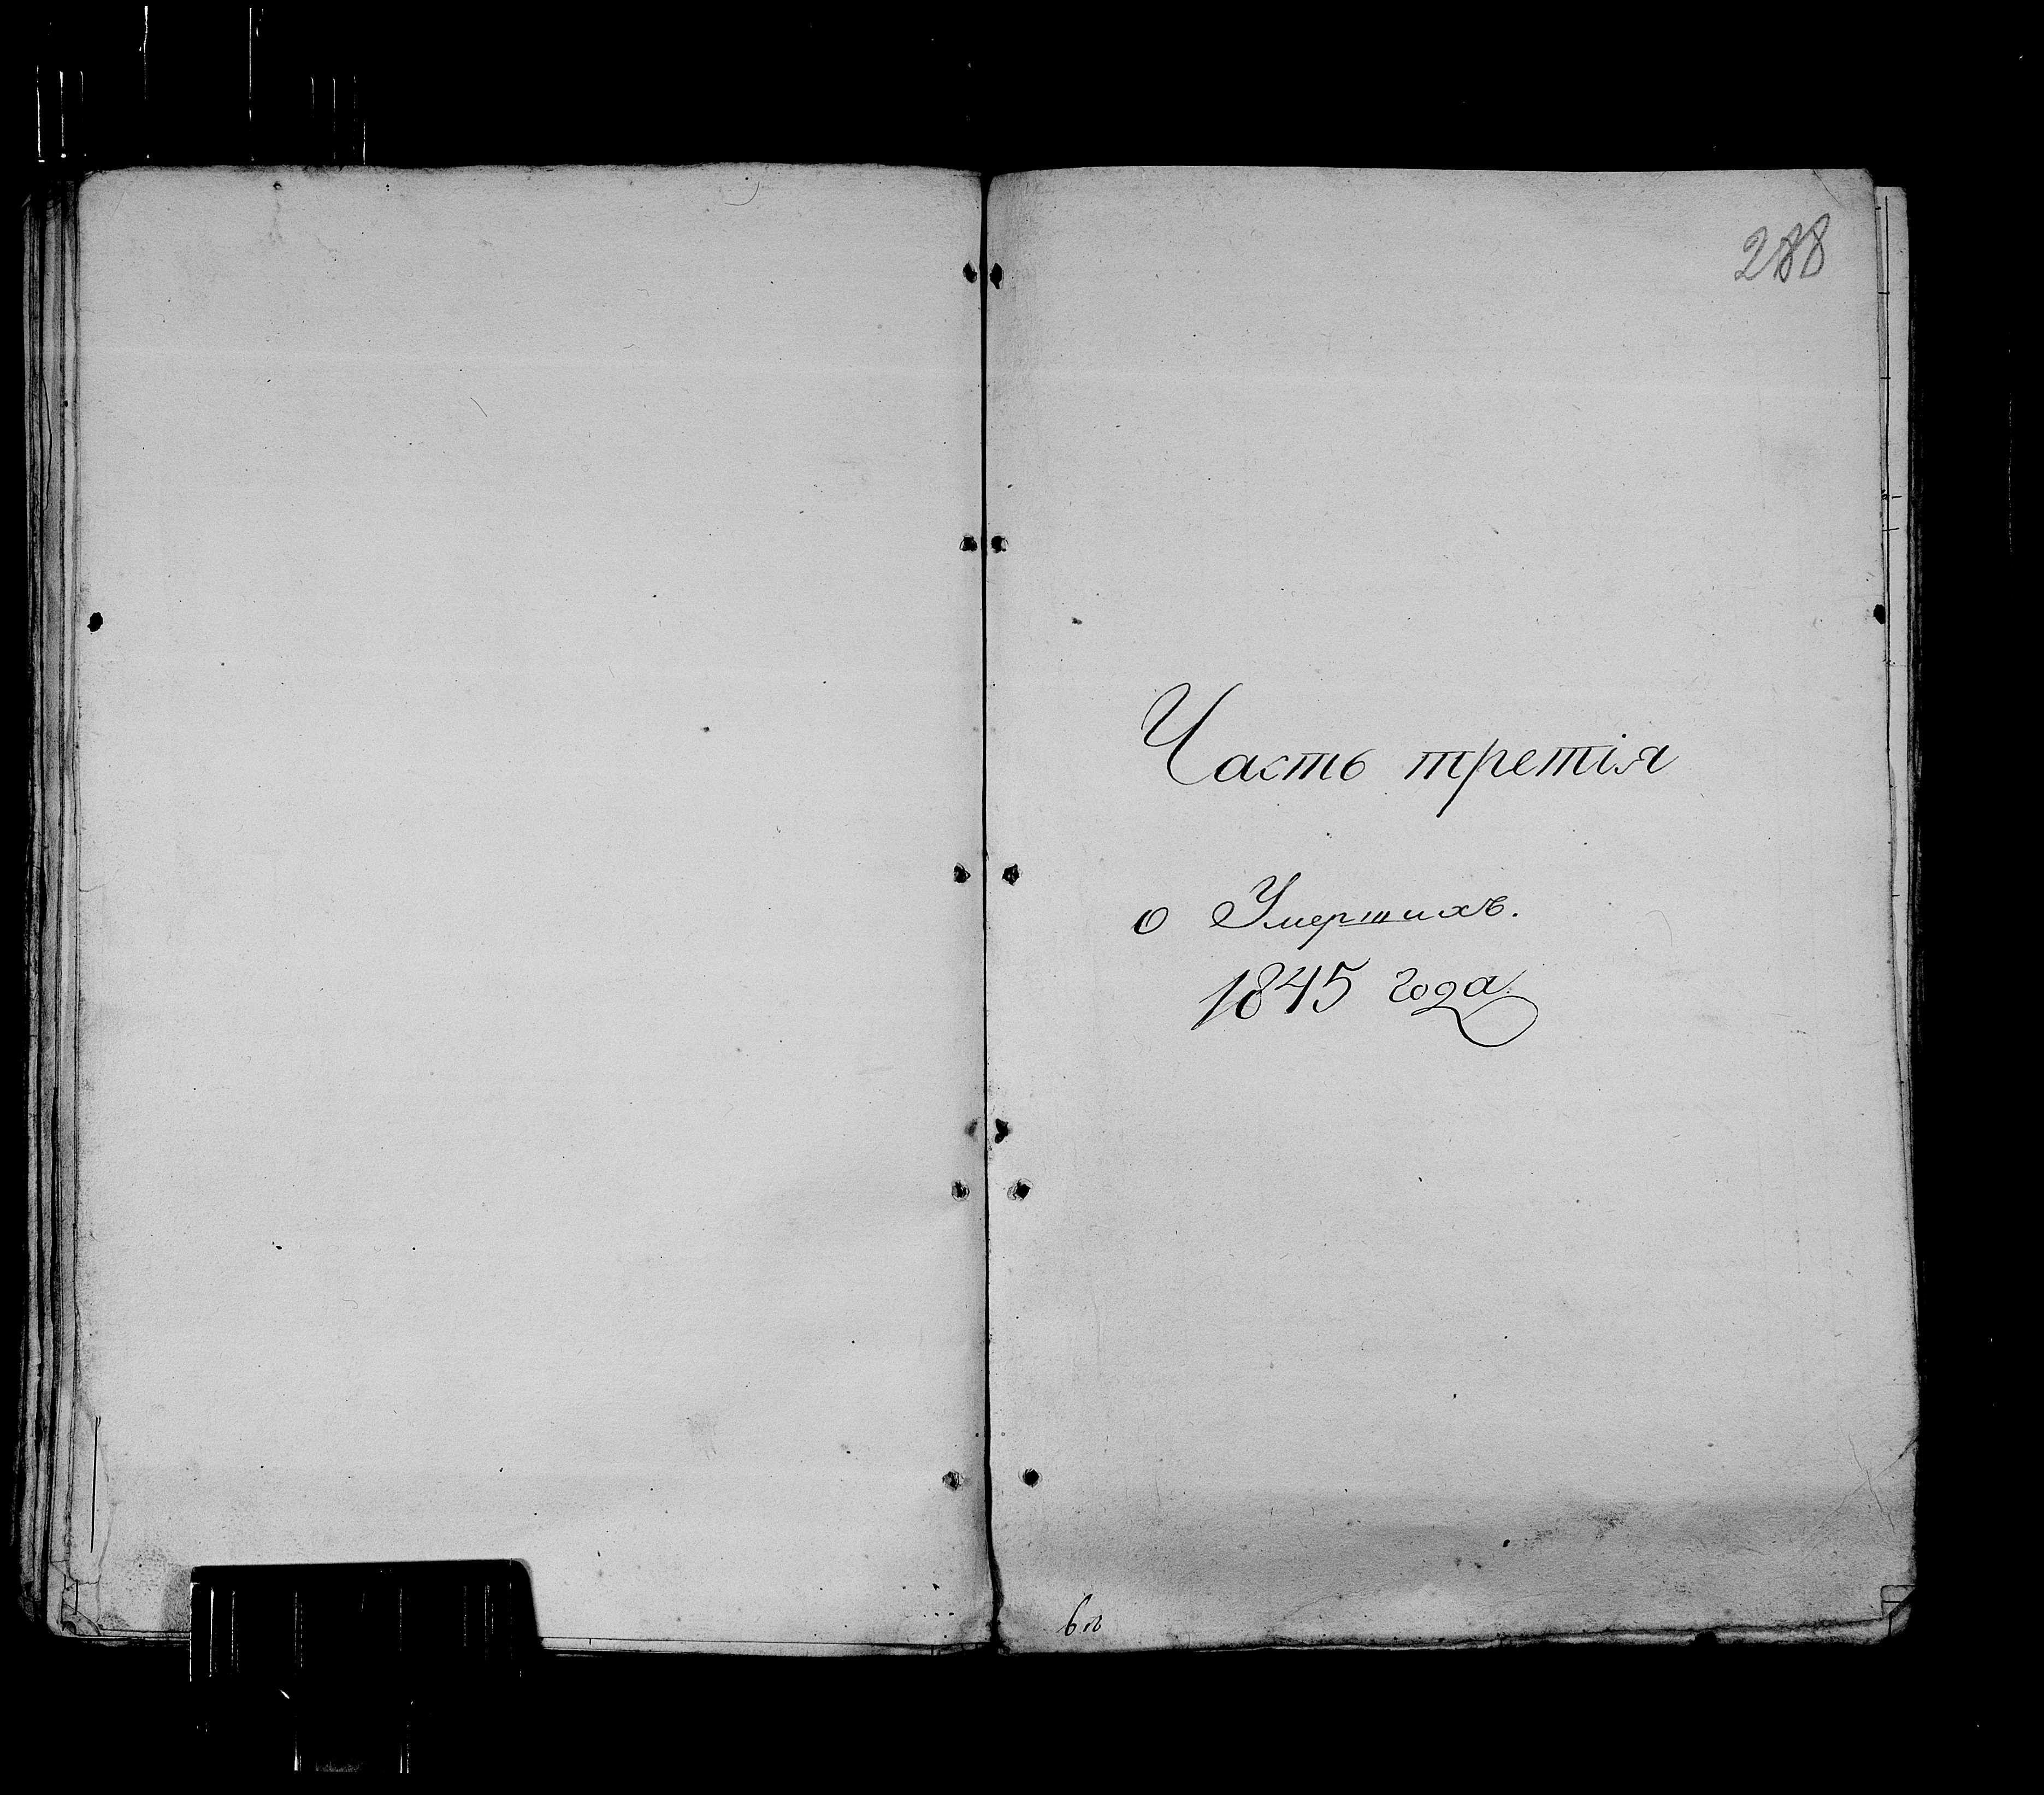 288
Часть третія
о Умершихъ.
1845 года.